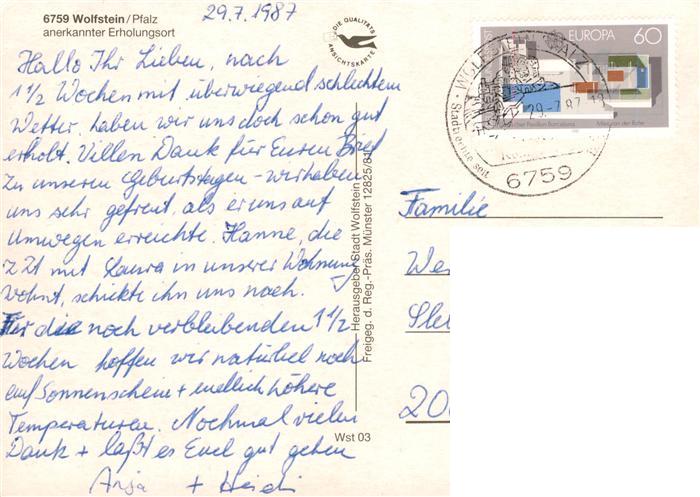 6759 Wolfstein/Pfalz
anerkannter Erholungsort
29.7.1987
Hallo Ihr Lieben, nach
1 1/2 Wochen mit überwiegend schlechtem
Wetter, haben wir uns doch schon gut
erholt. Vielen Dank für Euren Brief
zu unseren Geburtstagen - wir haben
uns sehr gefreut, als er uns auf
Umwegen erreichte. Hanne, die
z Zt mit Laura in unserer Wohnung
wohnt, schickte ihn uns nach.
Für die noch verbleibenden 1 1/2
Wochen hoffen wir natürlich noch
auf Sonnenschein + endlich höhere
Temperaturen. Nochmal vielen
Dank + laßt es Euch gut gehen
Anja + Heidi
DIE QUALITÄTS
ANSICHTSKARTE
Herausgeber Stadt Wolfstein
Freigeg. d. Reg.-Präs. Münster 12825/81
Wst 03
EUROPA 60
29.-7.87
Stadtrechte seit
6759
Familie
We
200